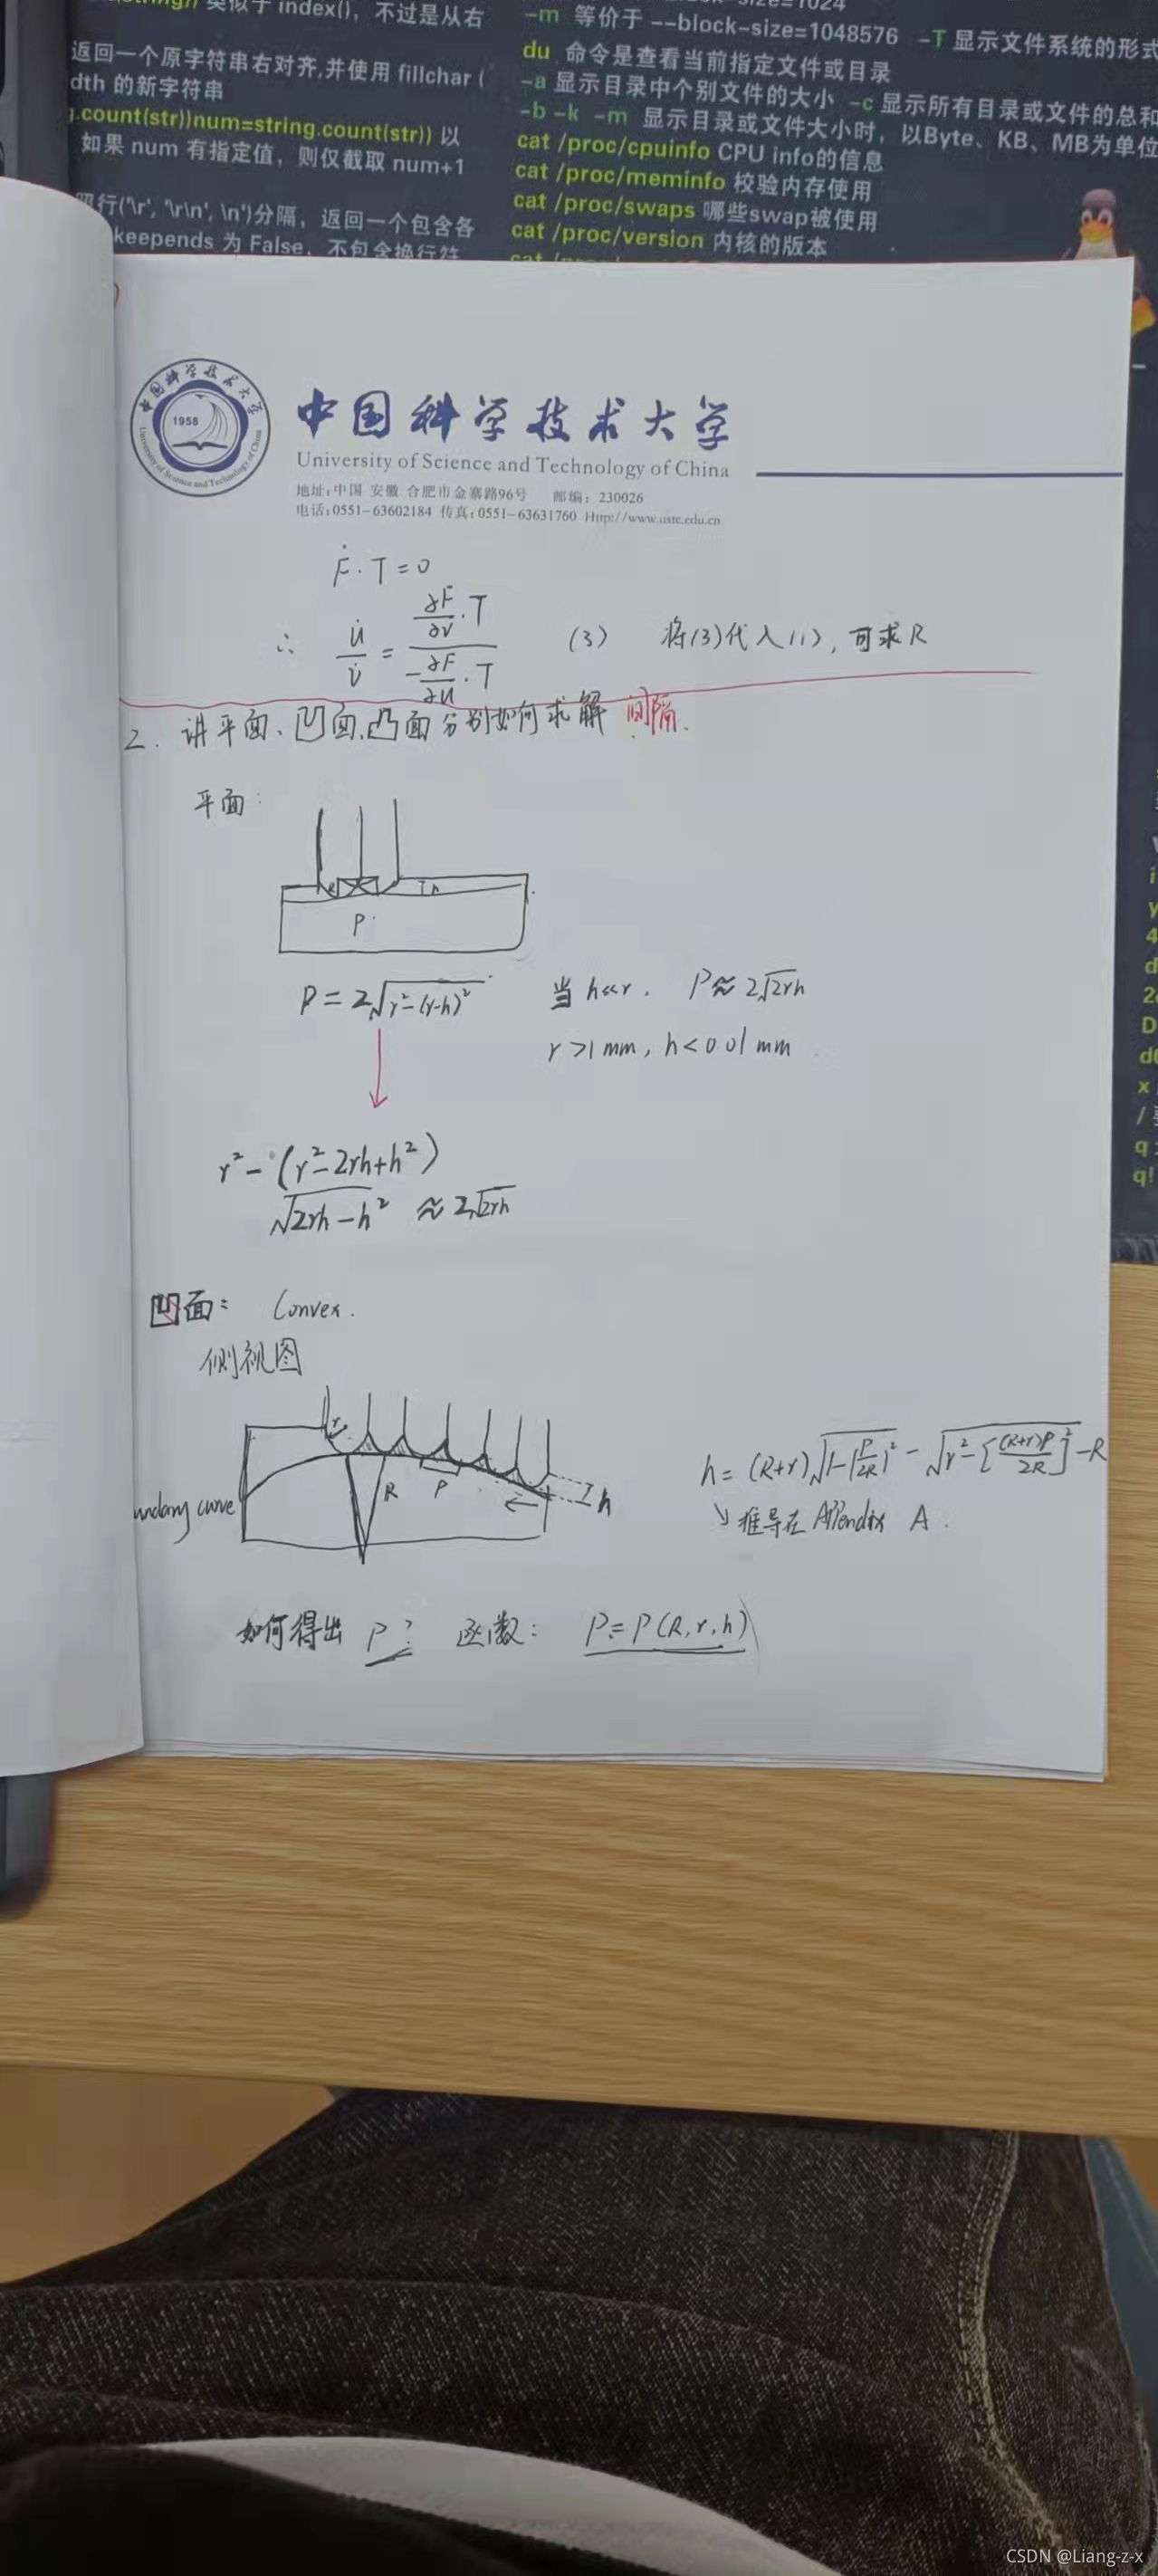 类似于 index()，不过是从右
返回一个原字符串右对齐,并使用 fillchar (
dth 的新字符串
.count(str))num=string.count(str)) 以
如果 num 有指定值，则仅截取 num+1
行('\r', '\r\n', \n')分隔，返回一个包含各
keepends 为 False，不包含换行符
-m 等价于 --block-size=1048576 -T 显示文件系统的形式
du 命令是查看当前指定文件或目录
-a 显示目录中个别文件的大小 -c 显示所有目录或文件的总和
-b -k -m 显示目录或文件大小时，以Byte、KB、MB为单位
cat /proc/cpuinfo CPU info的信息
cat /proc/meminfo 校验内存使用
cat /proc/swaps 哪些swap被使用
cat /proc/version 内核的版本
中国科学技术大学
1958
University of Science and Technology of China
中国科学技术大学
University of Science and Technology of China
地址:中国 安徽 合肥市金寨路96号 邮编：230026
电话:0551-63602184 传真:0551-63631760 Http://www.ustc.edu.cn
Ḟ · T = 0
∴ u̇/v̇ = (∂F/∂v · T)/(-∂F/∂u · T) (3) 将(3)代入(1), 可求R
2. 讲平面、凹面、凸面分别如何求解 间隔.
平面:
h
P
P = 2√(r²-(r-h)²) 当 h<<r. P ≈ 2√2rh
r>1mm, h<0.01mm
r² - (r²-2rh+h²)
√2rh-h² ≈ 2√2rh
凹面: Convex.
侧视图
r
R P h
undary curve
h = (R+r)√(1-(P/2R)²) - √(r²-[(R+r)P/2R]²) - R
↘ 推导在 Appendix A.
如何得出 P? 函数: P = P(R, r, h)
CSDN @Liang-z-x